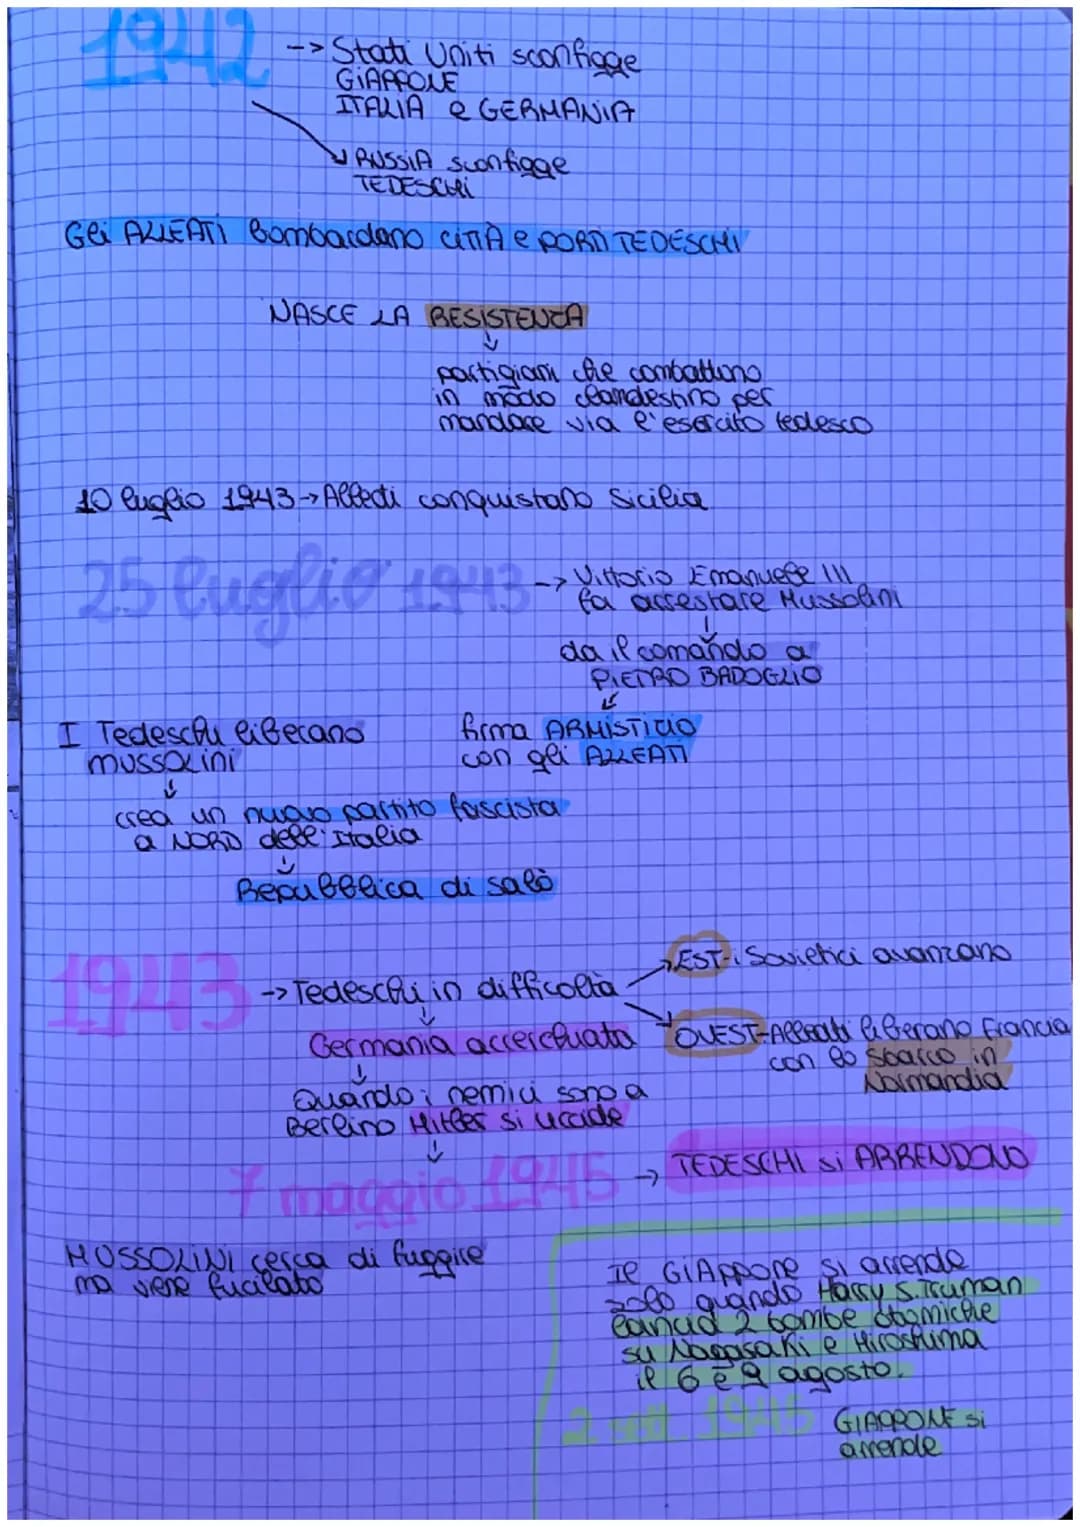 1942
-> Stati Uniti sconfigge
GIAPPONE
ITALIA e GERMANIA
RUSSIA sconfigge
TEDESCHI
Gli ALLEATI bombardano CITTÀ e PORTI TEDESCHI
NASCE LA RESISTENZA
partigiani che combattono
in modo clandestino per
mandare via l'esercito tedesco
10 luglio 1943 -> Alleati conquistano Sicilia
25 luglio 1943 -> Vittorio Emanuele III
fa arrestare Mussolini
da il comando a
PIETRO BADOGLIO
firma ARMISTIZIO
con gli ALLEATI
I Tedeschi liberano
MUSSOLINI
crea un nuovo partito fascista
a NORD dell'Italia
Repubblica di salò
1943 -> Tedeschi in difficoltà
EST-i Sovietici avanzano
OVEST-Alleati liberano Francia
con lo sbarco in
Normandia
Germania accerchiata
Quando i nemici sono a
Berlino Hitler si uccide
7 maggio 1945 -> TEDESCHI si ARRENDONO
MUSSOLINI cerca di fuggire
ma viene fucilato
Il GIAPPONE si arrende
solo quando Harry S. Truman
lancia 2 bombe atomiche
su Nagasaki e Hiroshima
il 6 e 9 agosto.
2 sett. 1945 GIAPPONE si
arrende